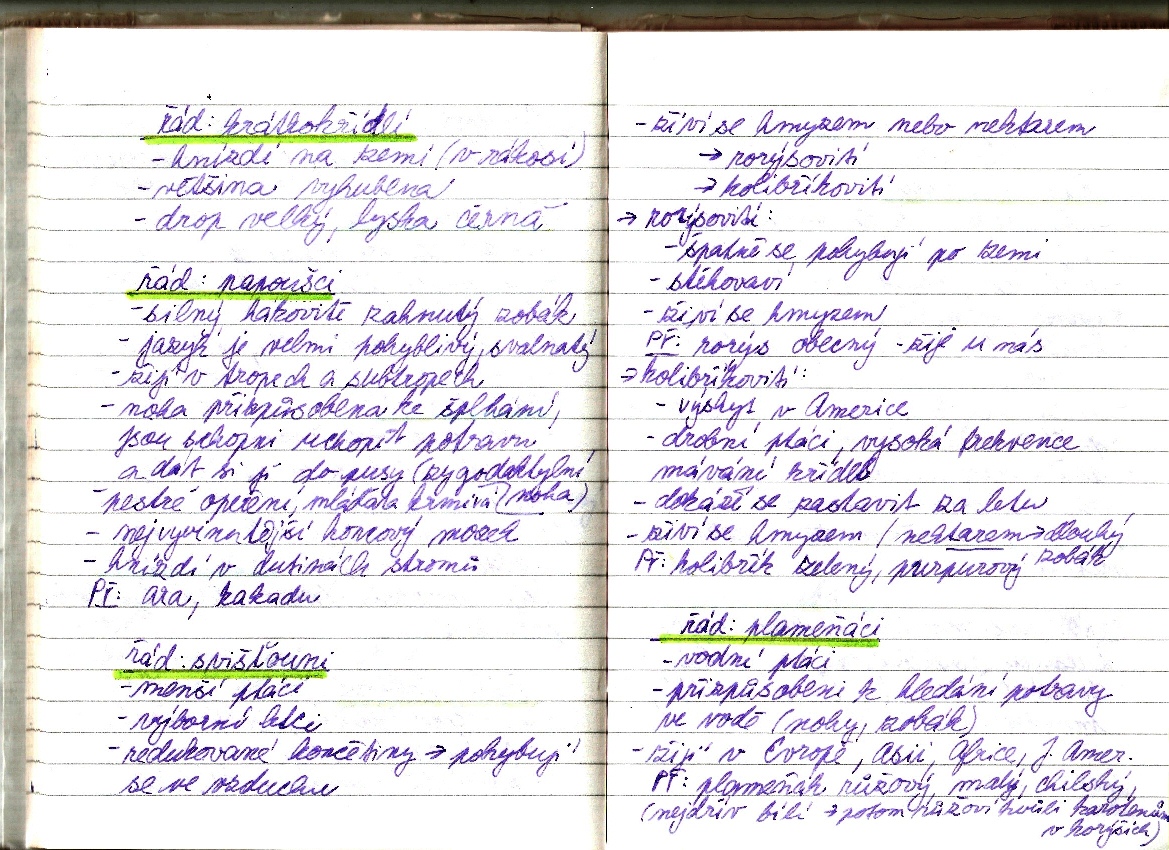 řád: krátkokřídlí
- hnízdí na zemi (v rákosí)
- většina vyhubena
- drop velký, lyska černá
řád: papoušci
- silný hákovitě zahnutý zobák
- jazyk je velmi pohyblivý, svalnatý
- žijí v tropech a subtropech
- noha přizpůsobena ke šplhání,
jsou schopni uchopit potravu
a dát si ji do pusy (zygodaktylní
- pestré opeření, mláďata krmiví (noha)
- nejvyvinutější koncový mozek
- hnízdí v dutinách stromů
Př: ara, kakadu
řád: svišťouni
- menší ptáci
- výborní letci
- redukované končetiny → pohybují
se ve vzduchu
- živí se hmyzem nebo nektarem
→ rorýsovití
→ kolibříkovití
→ rorýsovití:
- špatně se pohybují po zemi
- stěhovaví
- živí se hmyzem
Př: rorýs obecný - žije u nás
→ kolibříkovití:
- výskyt v Americe
- drobní ptáci, vysoká frekvence
mávání křídel
- dokáží se zastavit za letu
- živí se hmyzem / nektarem → dlouhý
Př: kolibřík zelený, purpurový zobák
řád: plameňáci
- vodní ptáci
- přizpůsobeni k hledání potravy
ve vodě (nohy, zobák)
- žijí v Evropě, Asii, Africe, J. Amer.
Př: plameňák růžový, malý, chilský,
(nejdřív bílí → potom růžoví kvůli karotenům
v korýších)